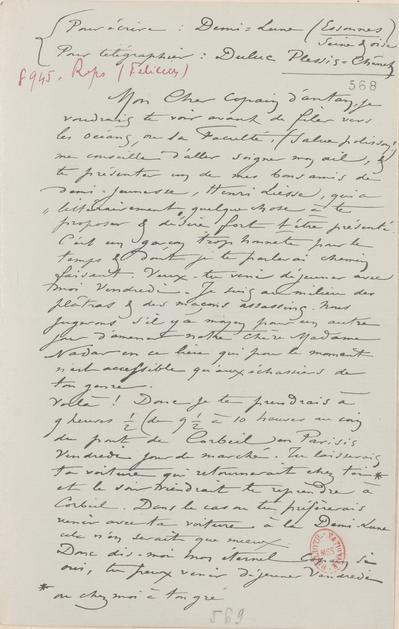 Pour écrire : Demi-Lune (Essonnes)
Seine & Oise
Pour télégraphier : Duluc Plessis-Chênet
8945. Rops (Félicien)
568
Mon Cher Copain d'antan, je
voudrais te voir avant de filer vers
les océans, où la Faculté, (Salue polisson!)
me conseille d'aller soigner mon œil, &
te présenter un de mes bons amis de
demi-jeunesse, Henri Liesse, qui a
"littérairement quelque chose à te
proposer & désire fort t'être présenté.
C'est un garçon trop honnête pour le
temps & dont je te parlerai chemin
faisant. Veux-tu venir déjeuner avec
moi Vendredi. Je suis au milieu des
plâtras & des maçons assassins. Nous
jugerons s'il y a moyen pour un autre
jour d'amener notre chère Madame
Nadar en ce lieu qui pour le moment
n'est accessible qu'aux échassiers de
ton genre.
Voilà ! Donc je te prendrais à
9 heures ½ (de 9 ½ à 10 heures au coin
du pont de Corbeil en Parisis
Vendredi jour de marché. Tu laisserais
ta voiture qui retournerait chez toi*
et le soir viendrait te reprendre à
Corbeil. Dans le cas où tu préfèrerais
venir avec ta voiture à la Demi-Lune
cela n'en serait que mieux.
Donc dis-moi mon éternel Copain si
oui, tu peux venir déjeuner Vendredi
* ou chez moi à ton gré
569